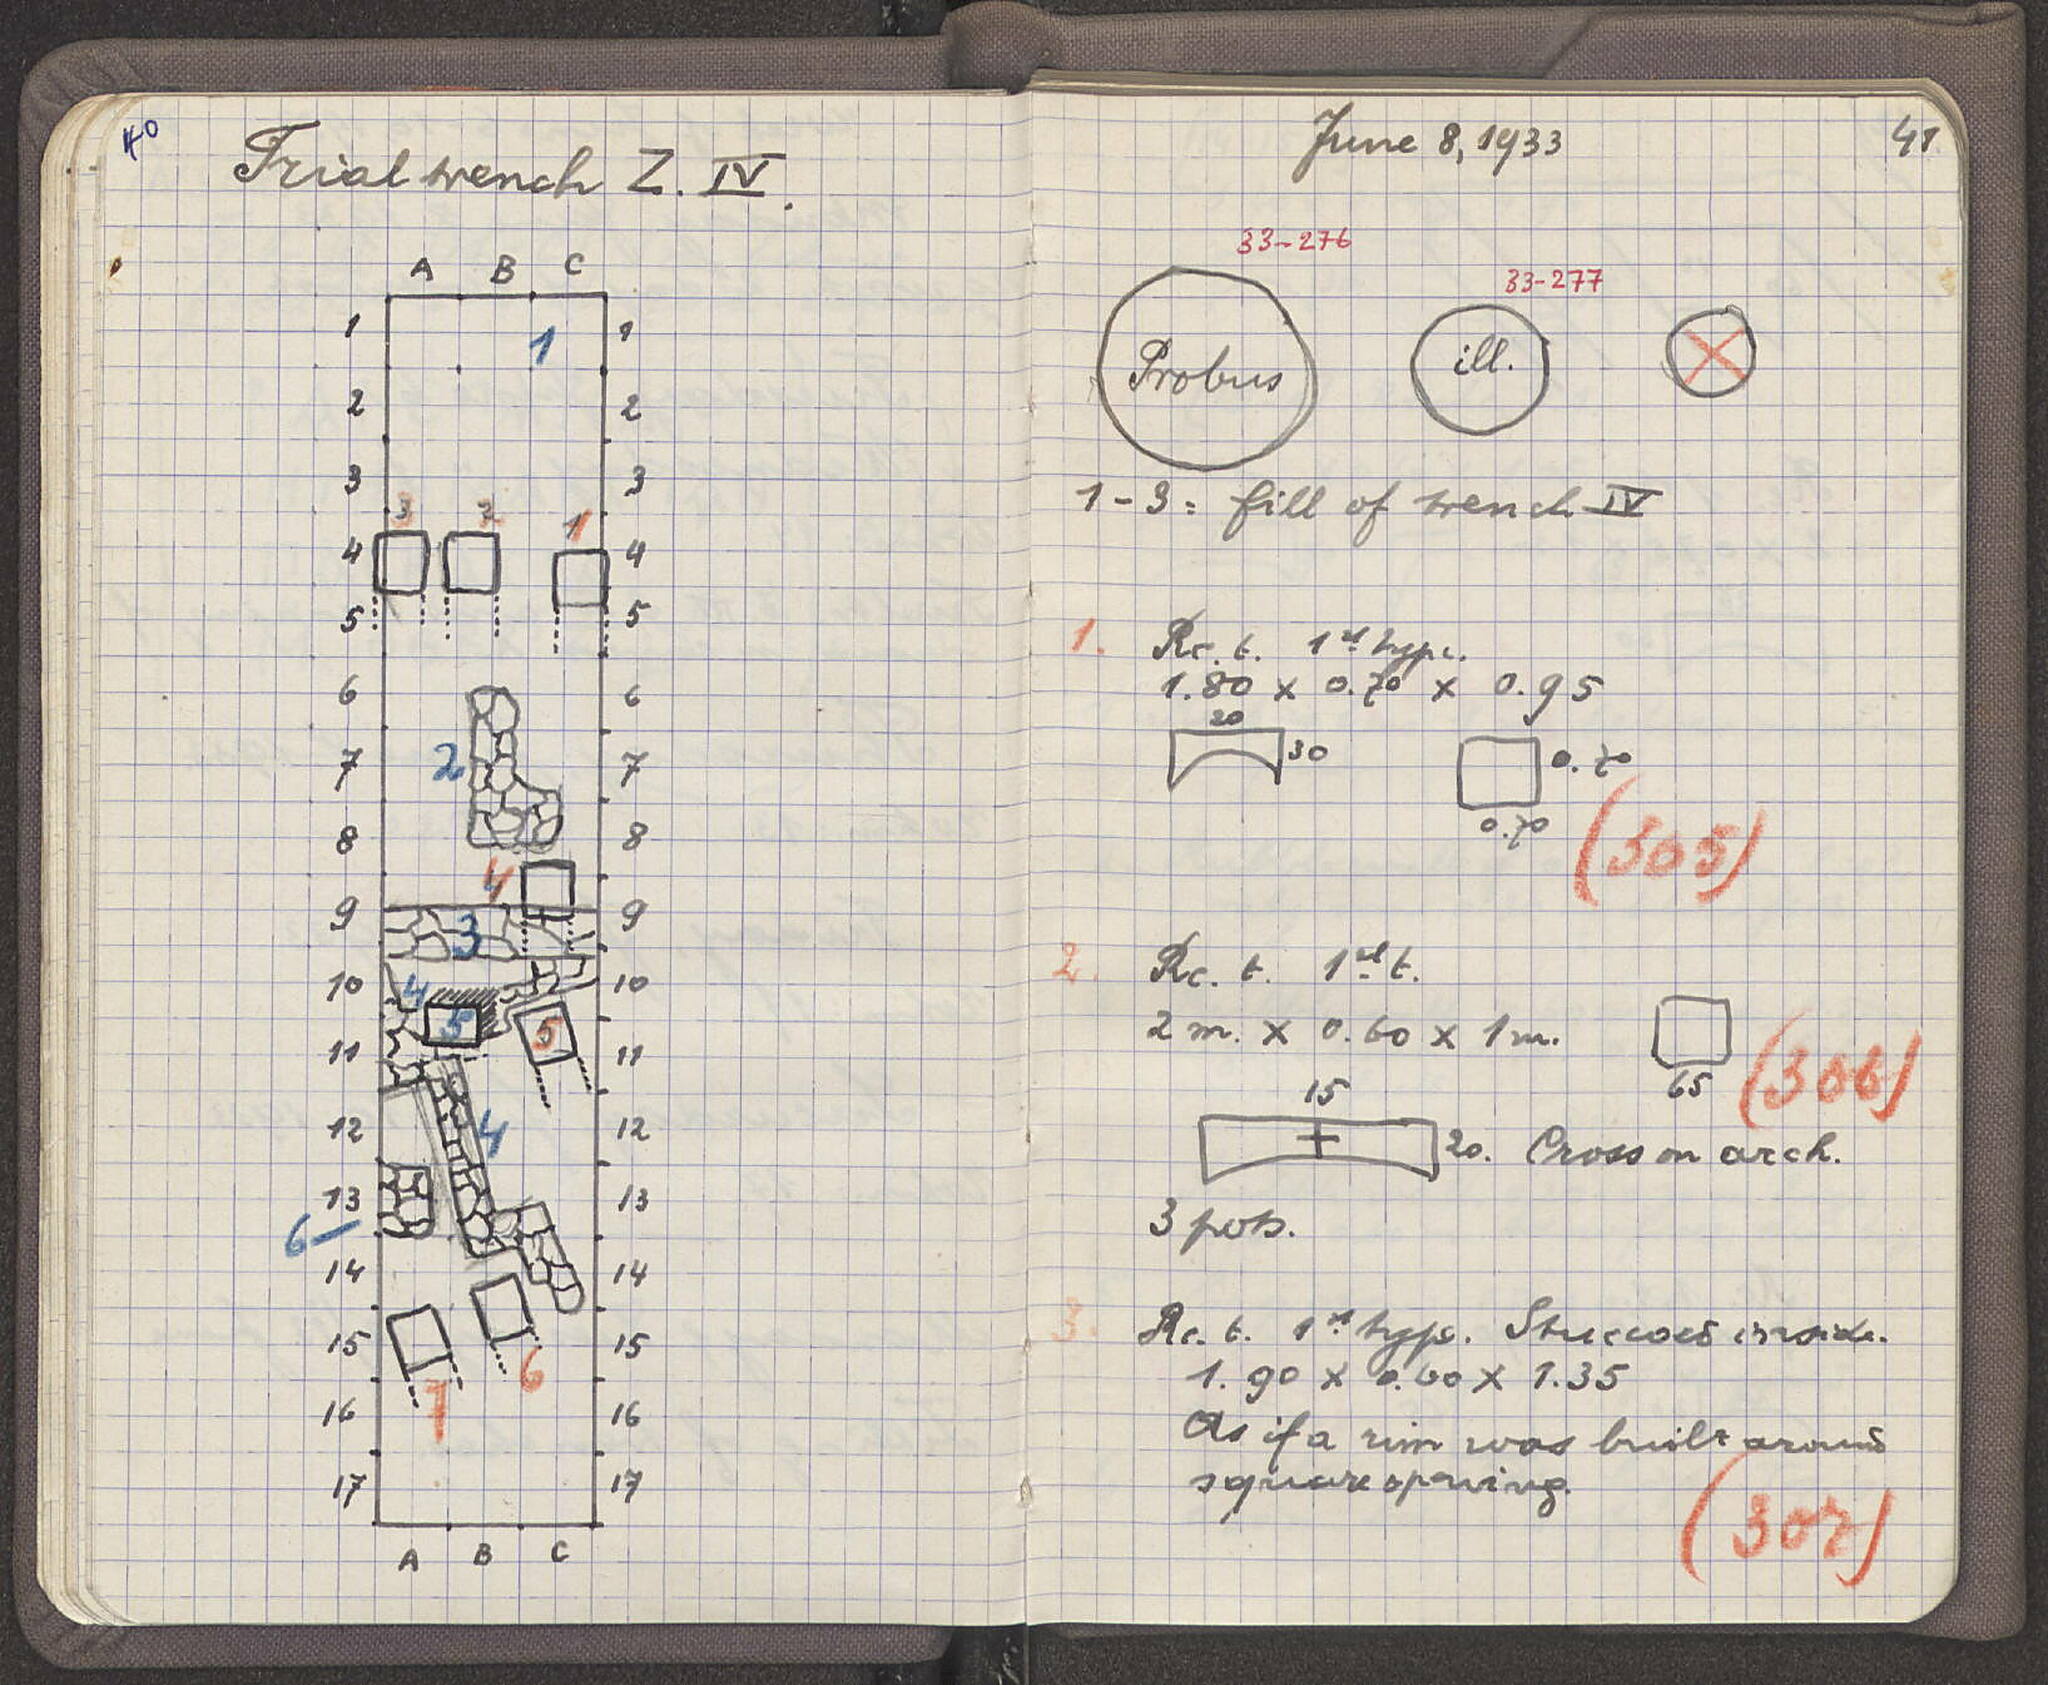 40
Trial trench Z. IV.
A B C
1 1 1
2 2
3 3
3 2 1
4 4
5 5
6 6
2
7 7
8 8
4
9 3 9
10 4 10
5 5
11 11
12 4 12
13 13
6
14 14
15 15
7 6
16 16
17 17
A B C
June 8, 1933
41
33-276
33-277
Probus
ill.
1-3 = fill of trench IV
1. Rc. t. 1st type.
1.80 x 0.70 x 0.95
20
30
0.70
0.70
(305)
2. Rc. t. 1st t.
2 m. x 0.60 x 1 m.
65
(306)
15
20. Cross on arch.
3 pots.
3. Rc. t. 1st type. Stuccoed inside.
1.90 x 0.60 x 1.35
As if a rim was built around
square opening.
(307)